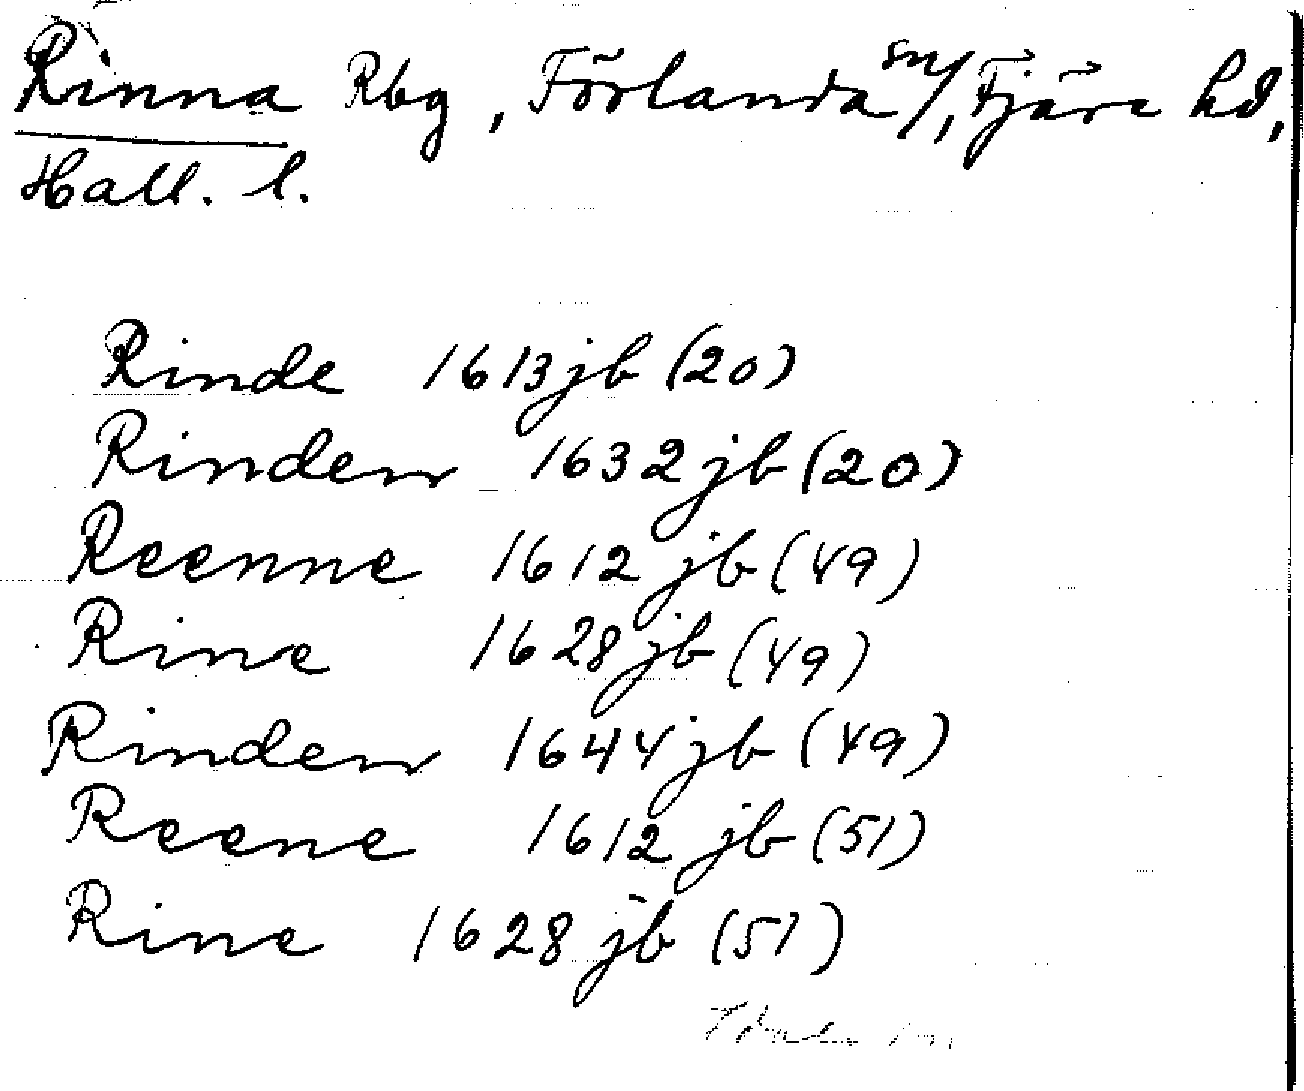 Rinna Rbg, Förlanda sn, Fjäre hd,
Hall. l.
Rinde 1613 jb (20)
Rinden 1632 jb (20)
Reenne 1612 jb (49)
Rine 1628 jb (49)
Rinden 1644 jb (49)
Reene 1612 jb (51)
Rine 1628 jb (51)